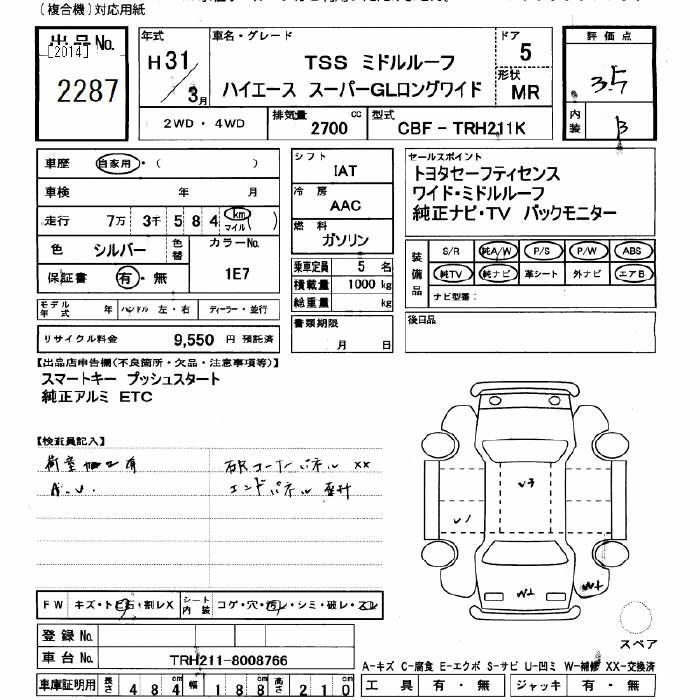 (複合機)対応用紙
出品No.
[2014]
2287
年式
H31/3月
車名・グレード
TSS ミドルルーフ
ハイエース スーパーGLロングワイド
ドア
5
形状
MR
評価点
3.5
内装
B
2WD・4WD
排気量
2700 cc
型式
CBF-TRH211K
車歴 自家用・( )
車検 年 月
走行 7万 3千 5 8 4 km マイル ( )
色 シルバー
色替
カラーNo.
1E7
保証書 有・無
モデル年式 年
ハンドル 左・右
ディーラー・並行
リサイクル料金 9,550 円 預託済
シフト
IAT
冷房
AAC
燃料
ガソリン
乗車定員 5 名
積載量 1000 kg
総重量 kg
書類期限
月 日
セールスポイント
トヨタセーフティセンス
ワイド・ミドルルーフ
純正ナビ・TV バックモニター
装備品
S/R 純A/W P/S P/W ABS
純TV 純ナビ 革シート 外ナビ エアB
ナビ型番:
後日品
【出品店申告欄(不良箇所・欠品・注意事項等)】
スマートキー プッシュスタート
純正アルミ ETC
【検査員記入】
A.U.
コーナーパネル XX
エンドパネル
U3
U1
W2
FW キズ・トビ石・割レX
シート内装 コゲ・穴・汚レ・シミ・破レ・スレ
登録No.
車台No. TRH211-8008766
車庫証明用 長さ 484cm 幅 188cm 高さ 210cm
スペア
A-キズ C-腐食 E-エクボ S-サビ U-凹ミ W-補修 XX-交換済
工具 有・無 ジャッキ 有・無